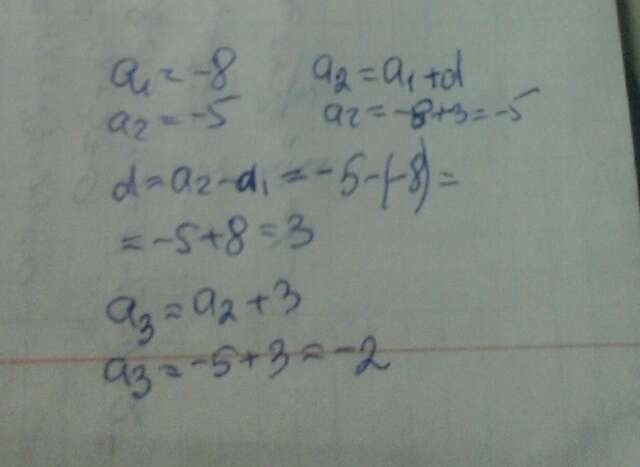 a₁ = -8
a₂ = -5
a₂ = a₁ + d
a₂ = -8+3 = -5
d = a₂ - a₁ = -5-(-8) =
= -5+8 = 3
a₃ = a₂ + 3
a₃ = -5+3 = -2